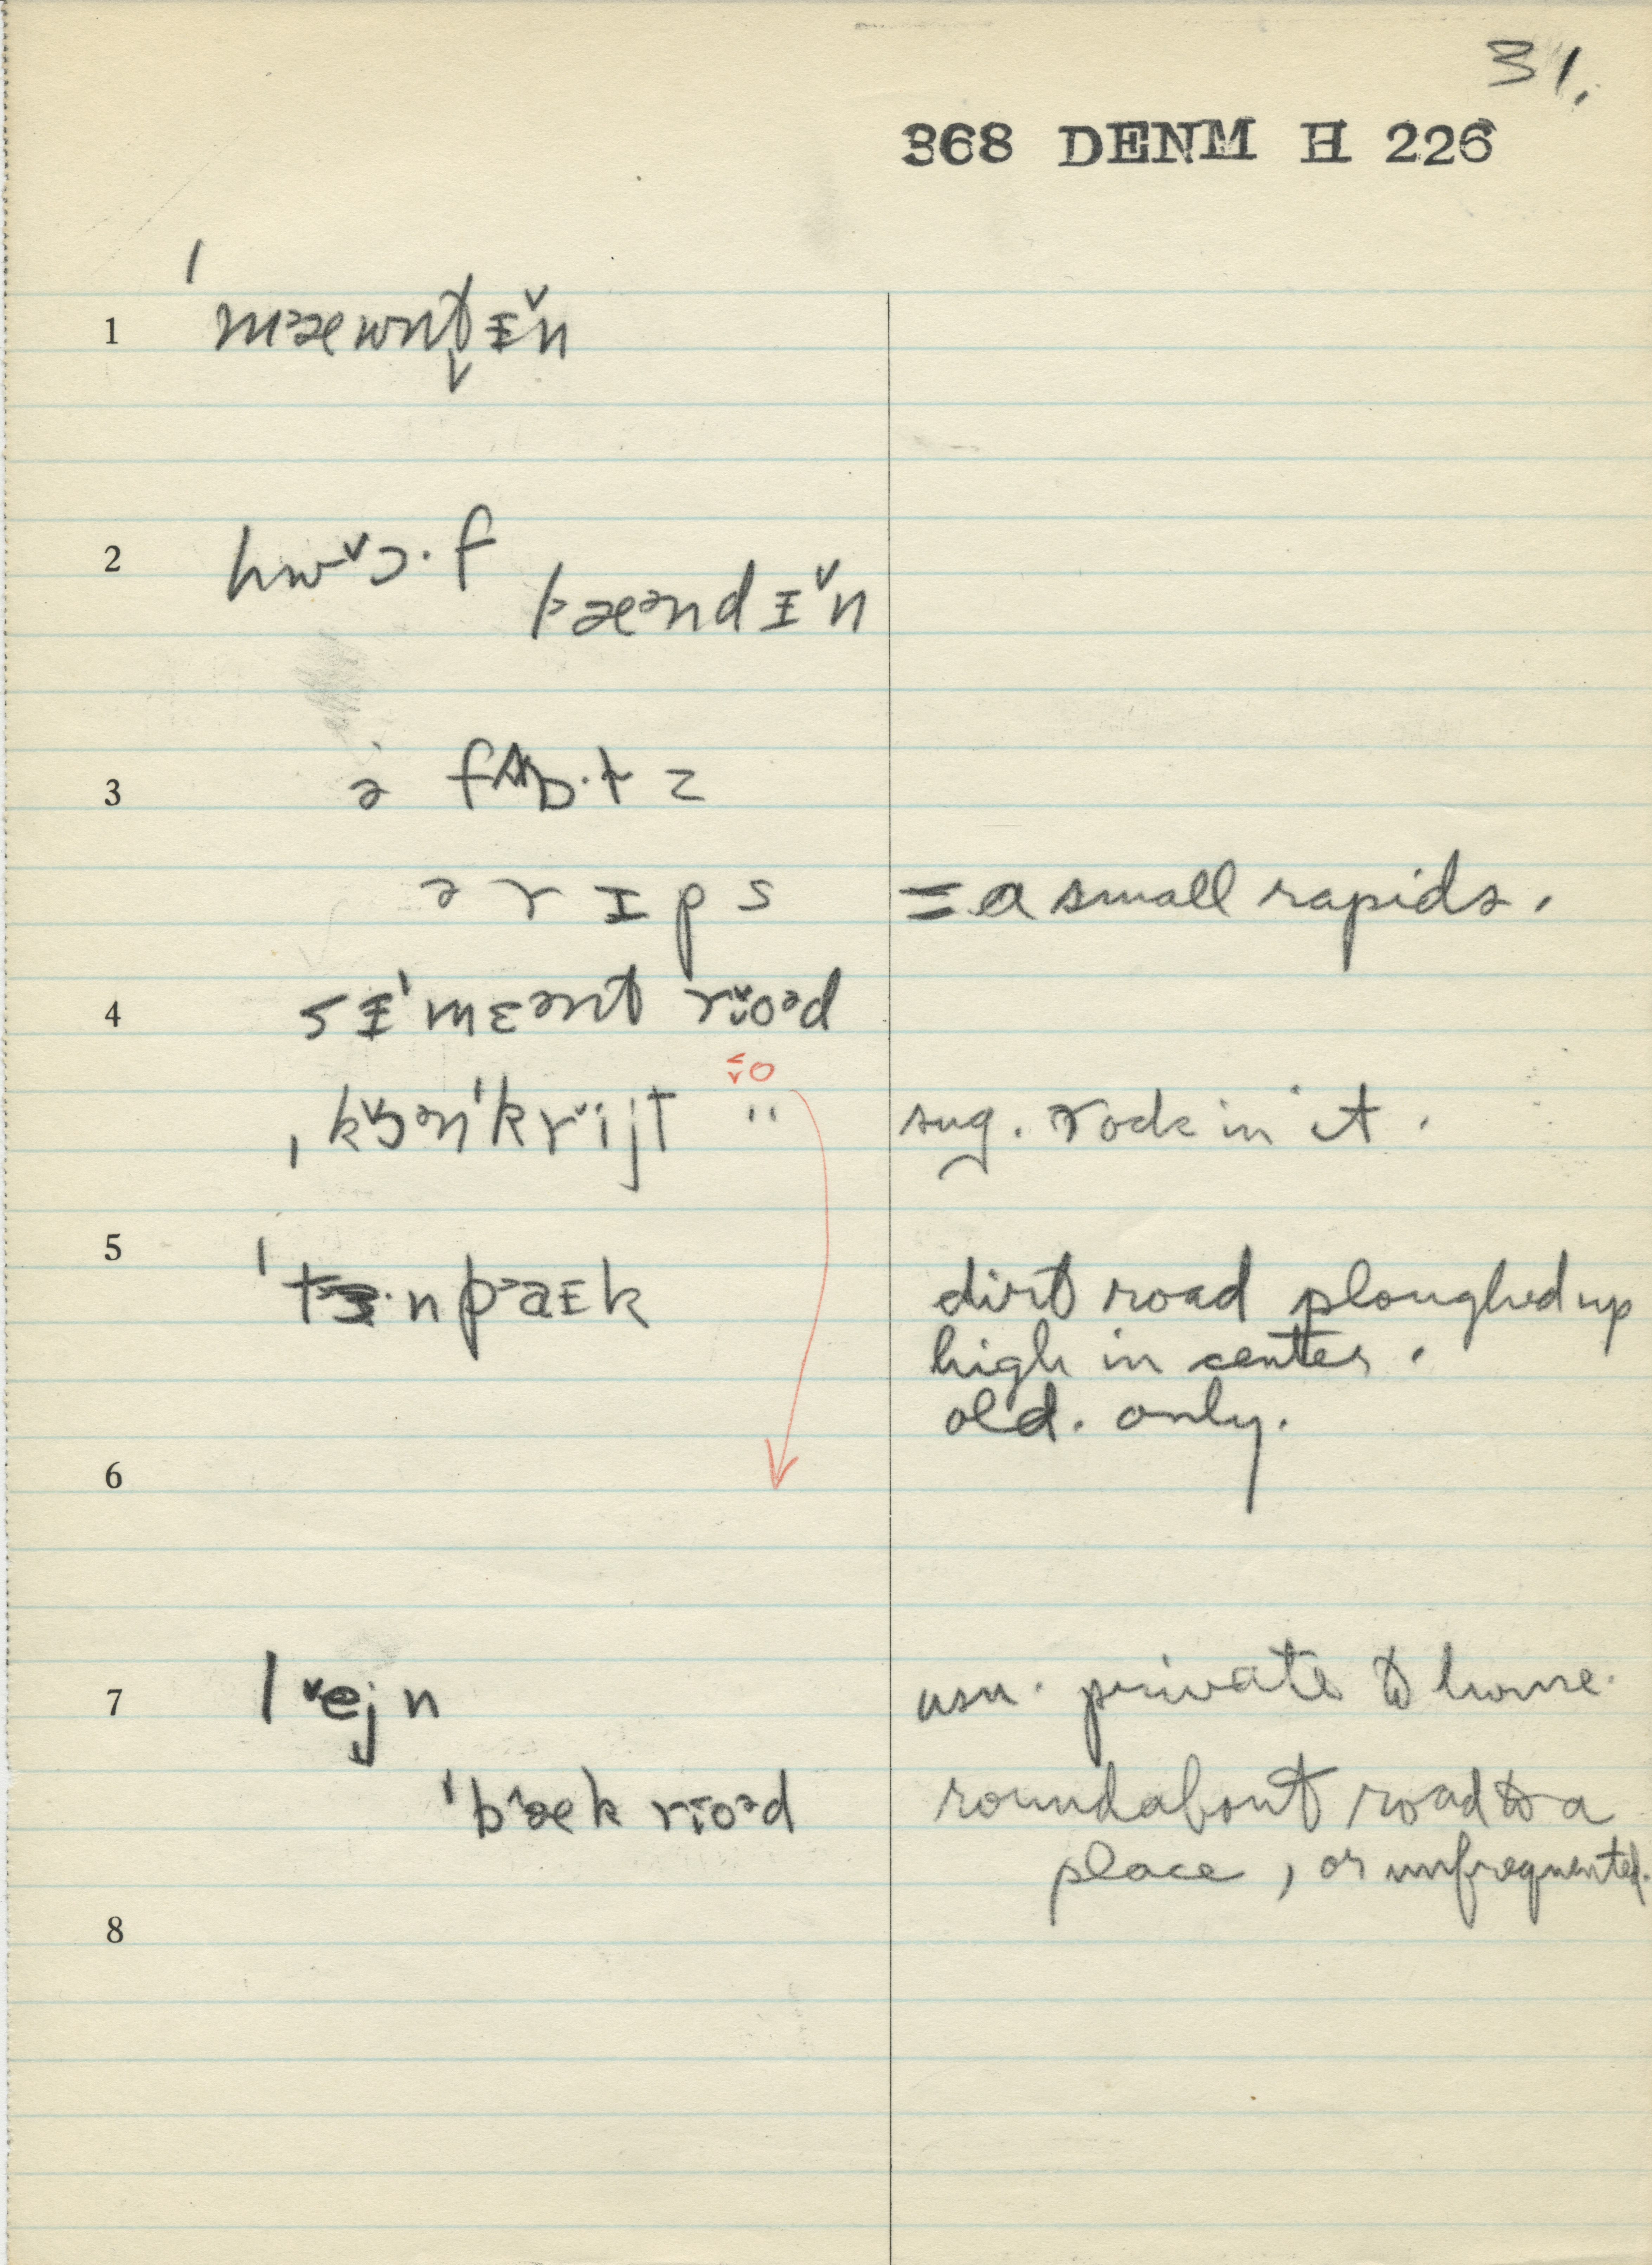 31.
368 DENM H 226
1 ˈmᵊæwnt̬ɪ̵̆n
2 hwᵛɔ·f
bᵊæᵊndɪ̵̆n
3 ə
ə rɪ̵ps = a small rapids.
4 sɪ̵ˈmɛᵊnt rᵛïoᵊd
sug. rock in it.
5 dirt road ploughed up
high in center.
old. only.
6
7 lᵛejn usu. private to home.
ˈbᵊæk rïoᵊd roundabout road to a
place, or unfrequented.
8